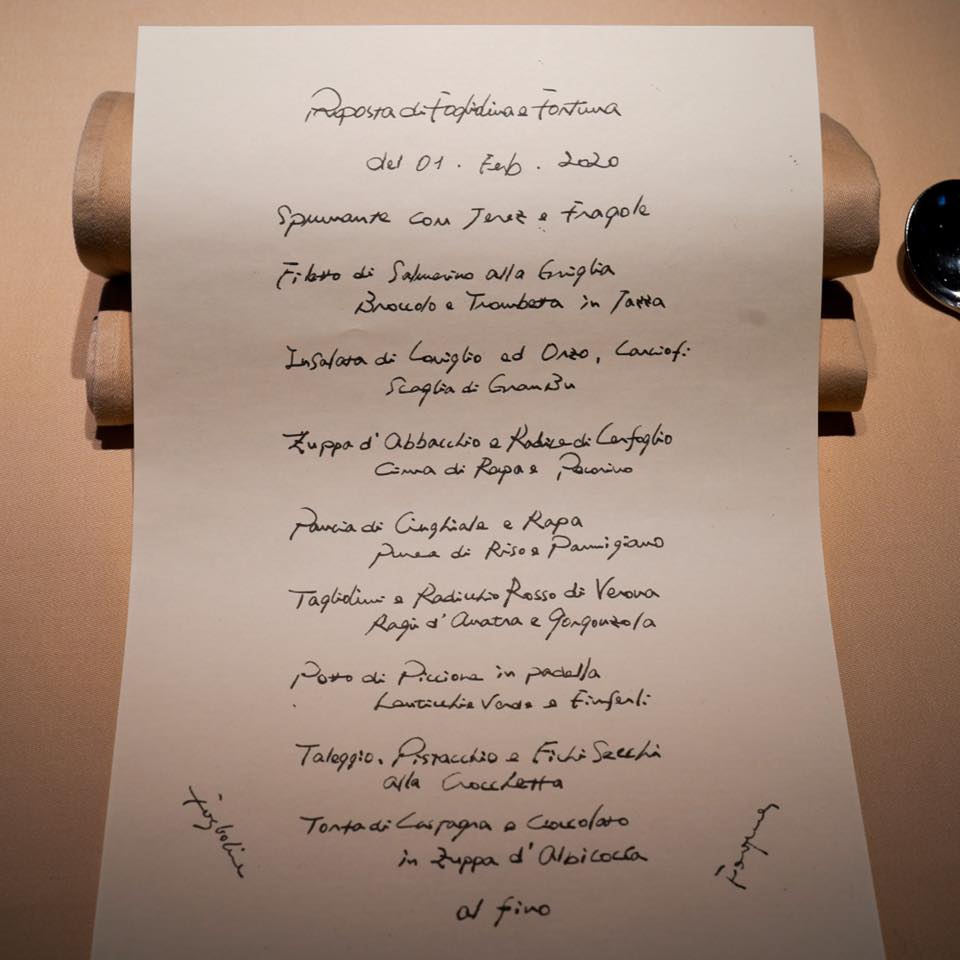 Proposta di Foglidina e Fortuna
del 01. Feb. 2020
Spumante con Jerez e Fragole
Filetto di Salmerino alla Griglia
Broccolo e Trombetta in Tazza
Insalata di Coniglio ed Orzo, Carciofi
Scaglia di GranBu
Zuppa d'Abbacchio e Radice di Cerfoglio
Cima di Rapa e Pecorino
Pancia di Cinghiale e Rapa
Purea di Riso e Parmigiano
Tagliolini e Radicchio Rosso di Verona
Ragù d'Anatra e Gorgonzola
Petto di Piccione in padella
Lenticchie Verde e Finferli
Taleggio, Pistacchio e Fichi Secchi
alla Crocchetta
Torta di Castagna e Cioccolato
in Zuppa d'Albicocca
al fino